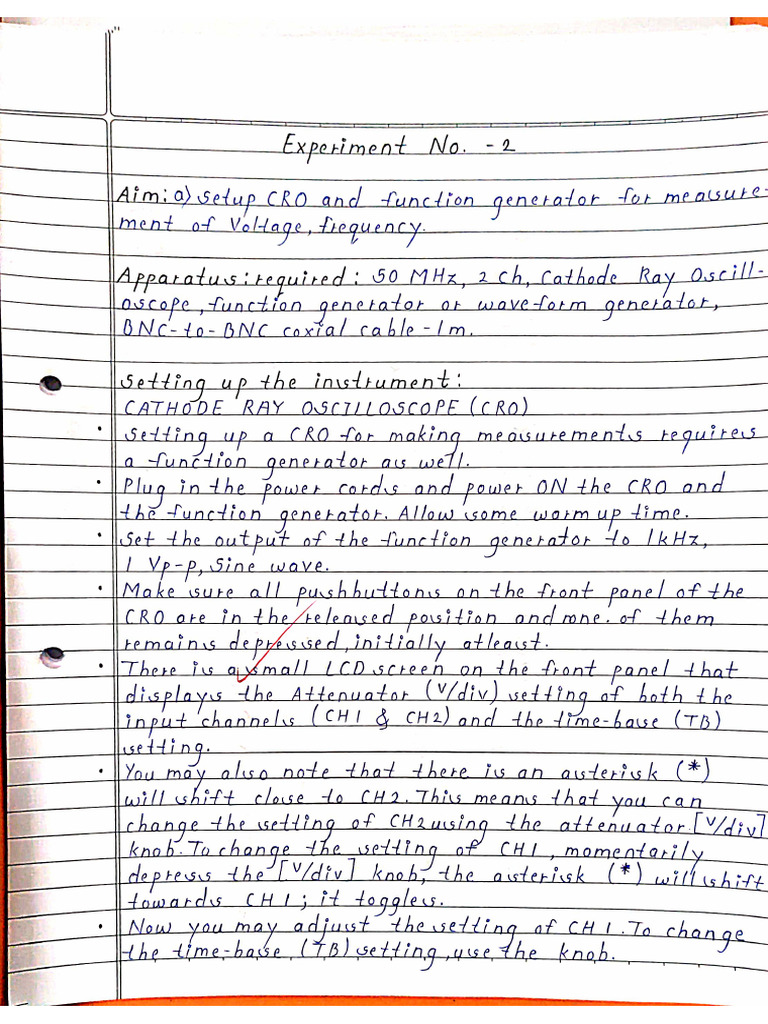 Experiment No. - 2
Aim: a) setup CRO and function generator for measure-
ment of Voltage, frequency.
Apparatus: required: 50 MHz, 2 Ch, Cathode Ray Oscill-
oscope, function generator or wave-form generator,
BNC-to-BNC coxial cable - 1m.
setting up the instrument:
CATHODE RAY OSCILLOSCOPE (CRO)
• setting up a CRO for making measurements requires
a function generator as well.
• Plug in the power cords and power ON the CRO and
the function generator. Allow some warm up time.
• Set the output of the function generator to 1kHz,
1 Vp-p, Sine wave.
• Make sure all pushbuttons on the front panel of the
CRO are in the released position and none. of them
remains depressed, initially atleast.
• There is a small LCD screen on the front panel that
displays the Attenuator (V/div) setting of both the
input channels (CH1 & CH2) and the time-base (TB)
setting.
• You may also note that there is an asterisk (*)
will shift close to CH2. This means that you can
change the setting of CH2 using the attenuator. [V/div]
knob. To change the setting of CH1, momentarily
depress the [V/div] knob, the asterisk (*) will shift
towards CH1; it toggles.
• Now you may adjust the setting of CH1. To change
the time-base (TB) setting, use the knob.